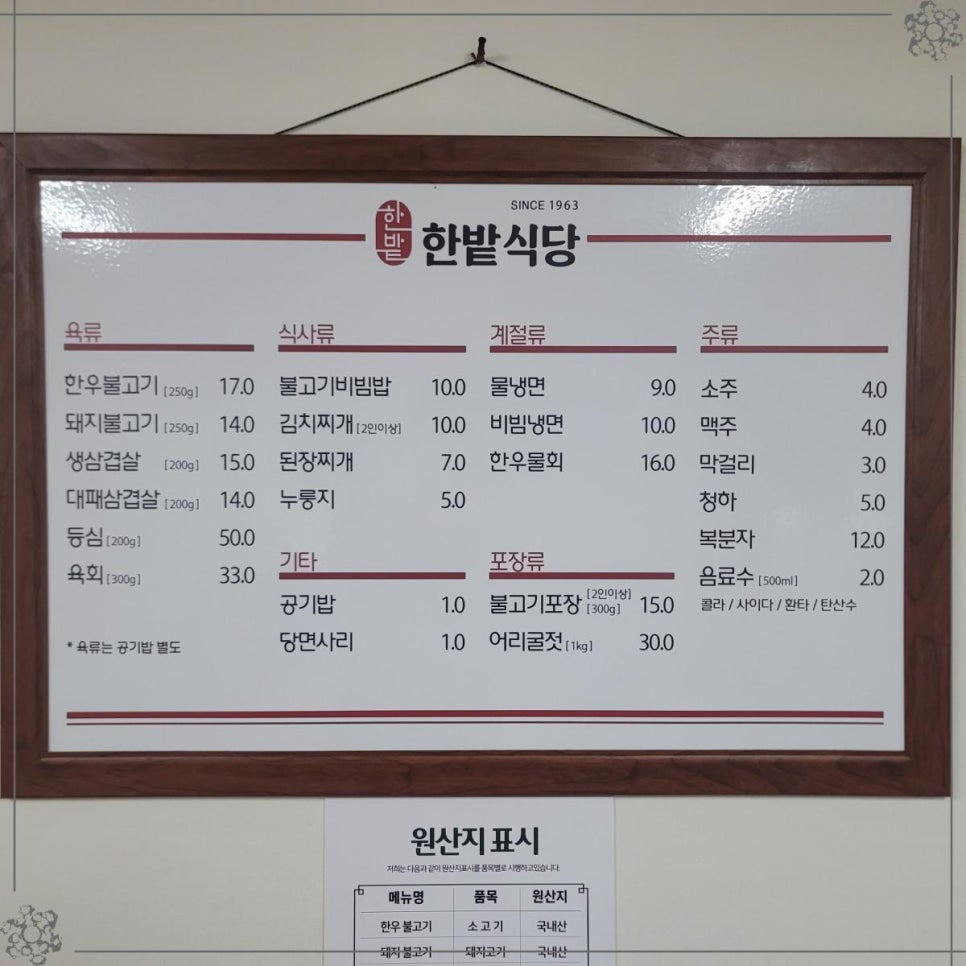 SINCE 1963
한밭
한밭식당
육류
한우불고기 [250g] 17.0
돼지불고기 [250g] 14.0
생삼겹살 [200g] 15.0
대패삼겹살 [200g] 14.0
등심 [200g] 50.0
육회 [300g] 33.0
* 육류는 공기밥 별도
식사류
불고기비빔밥 10.0
김치찌개 [2인이상] 10.0
된장찌개 7.0
누룽지 5.0
기타
공기밥 1.0
당면사리 1.0
계절류
물냉면 9.0
비빔냉면 10.0
한우물회 16.0
포장류
불고기포장 [2인이상] [300g] 15.0
어리굴젓 [1kg] 30.0
주류
소주 4.0
맥주 4.0
막걸리 3.0
청하 5.0
복분자 12.0
음료수 [500ml] 2.0
콜라 / 사이다 / 환타 / 탄산수
원산지 표시
저희는 다음과 같이 원산지표시를 품목별로 시행하고있습니다.
메뉴명 품목 원산지
한우 불고기 소 고 기 국내산
돼지 불고기 돼지고기 국내산